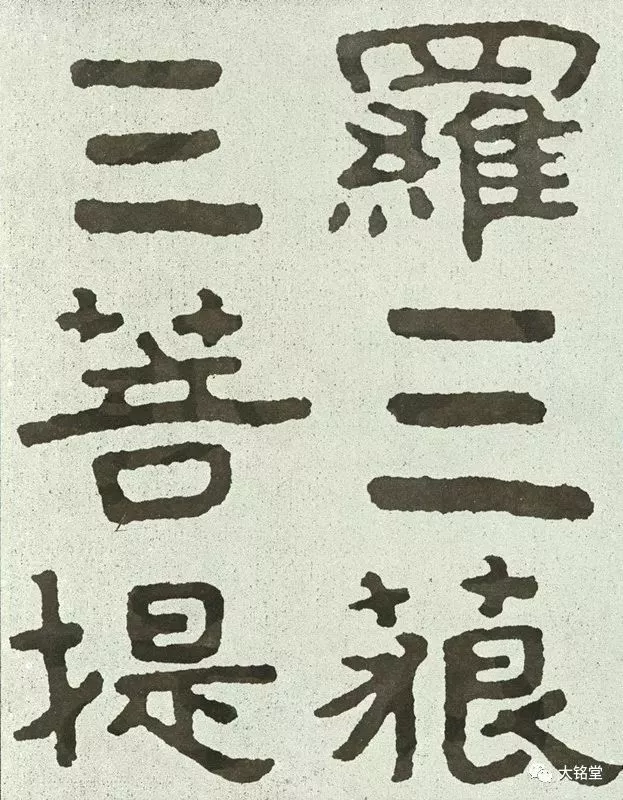 羅三藐
三菩提
大铭堂